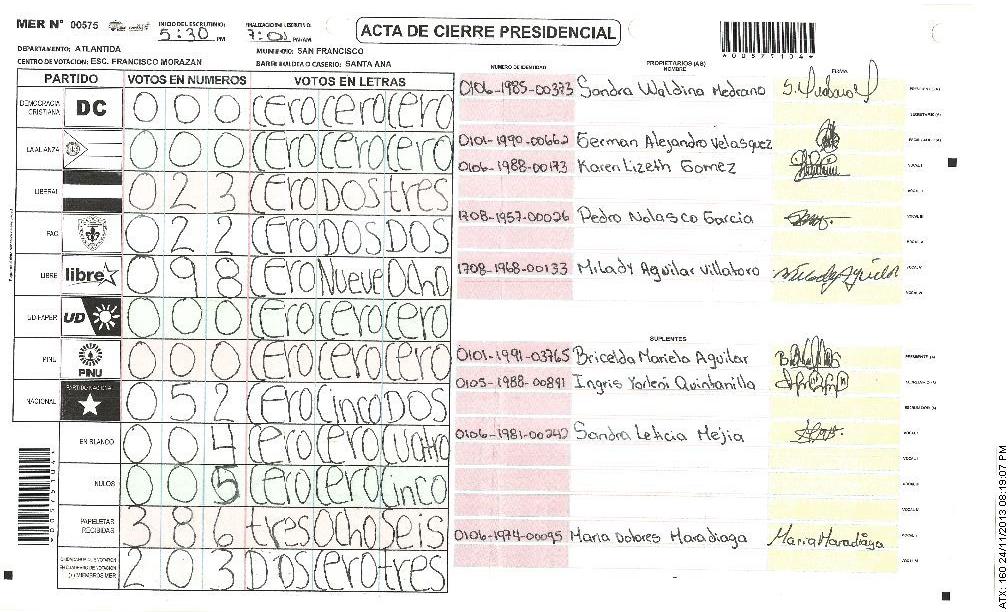 MER N° 00575 INICIO DEL ESCRUTINIO: 5:30 PM FINALIZACIÓN DEL ESCRUTINIO: 7:01 PM/AM
ACTA DE CIERRE PRESIDENCIAL
DEPARTAMENTO: ATLANTIDA MUNICIPIO: SAN FRANCISCO
CENTRO DE VOTACION: ESC. FRANCISCO MORAZAN SANTA ANA
PARTIDO VOTOS EN NUMEROS VOTOS EN LETRAS
DEMOCRACIA CRISTIANA DC 0 0 0 cero cero cero
LA ALANZA 0 0 0 cero cero cero
LIBERAL 0 2 3 cero DOS tres
PAC 0 2 2 cero DOS DOS
LIBRE libre 0 9 8 cero Nueve Ocho
UD-FAPER UD 0 0 0 cero cero cero
PINU PINU 0 0 0 cero cero cero
NACIONAL PARTIDO NACIONAL 0 5 2 cero Cinco DOS
EN BLANCO 0 0 4 cero cero cuatro
NULOS 0 0 5 cero cero Cinco
PAPELETAS RECIBIDAS 3 8 6 tres Ocho Seis
2 0 3 Dos cero tres
NUMERO DE IDENTIDAD PROPIETARIOS (AS) NOMBRE FIRMA
0106-1985-00373 Sandra Waldina Medrano
0101-1990-00662 German Alejandro Velasquez
0106-1988-00173 Karen Lizeth Gomez
1708-1957-00026 Pedro Nolasco Garcia
1708-1968-00133 Milady Aguilar Villatoro
SUPLENTES
0101-1991-03765 Bricelda Mariela Aguilar
0105-1988-00891 Ingris Yorleni Quintanilla
0106-1981-00242 Sandra Leticia Mejia
0106-1974-00095 Maria Dolores Maradiaga Maria Maradiaga
ATX: 160 24/11/2013 08:19:07 PM